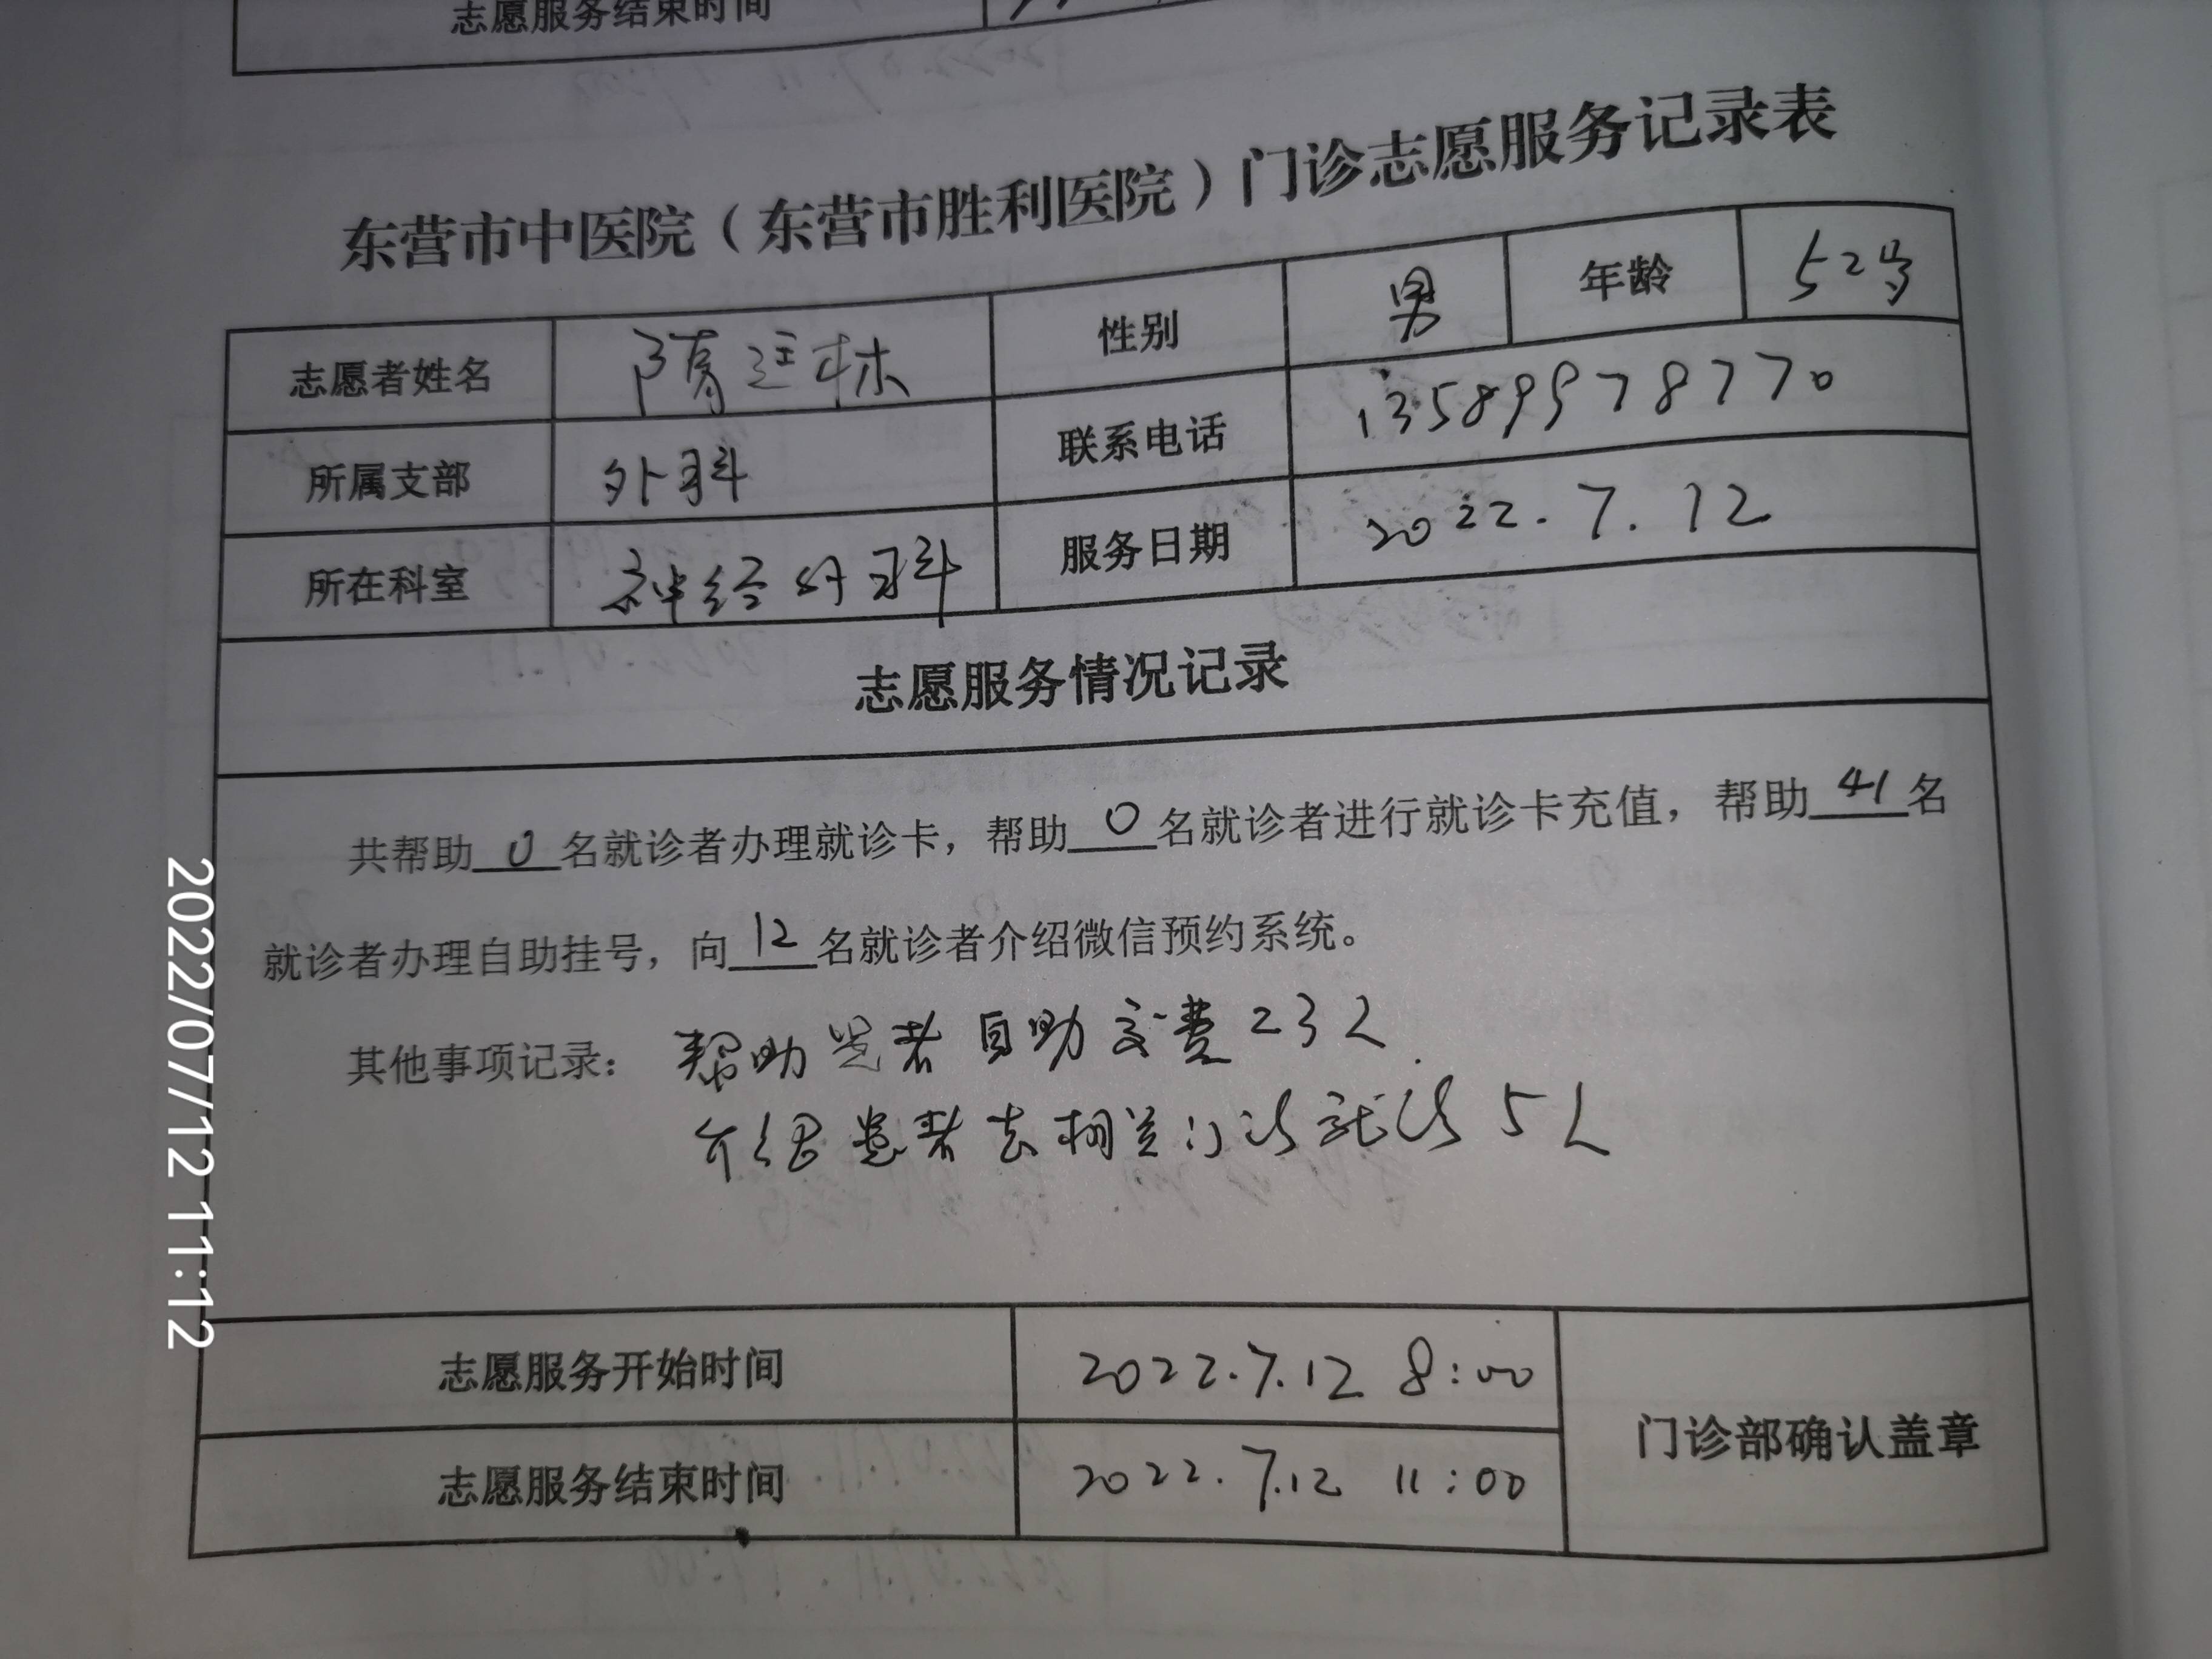 志愿服务结束时间
东营市中医院（东营市胜利医院）门诊志愿服务记录表
志愿者姓名 隋廷栋 性别 男 年龄 52岁
所属支部 外科 联系电话 13589978770
所在科室 神经外科 服务日期 2022.7.12
志愿服务情况记录
共帮助 0 名就诊者办理就诊卡，帮助 0 名就诊者进行就诊卡充值，帮助 41 名
就诊者办理自助挂号，向 12 名就诊者介绍微信预约系统。
其他事项记录： 帮助患者自助交费23人.
介绍患者去相关门诊就诊5人
志愿服务开始时间 2022.7.12 8:00
门诊部确认盖章
志愿服务结束时间 2022.7.12 11:00
2022/07/12 11:12